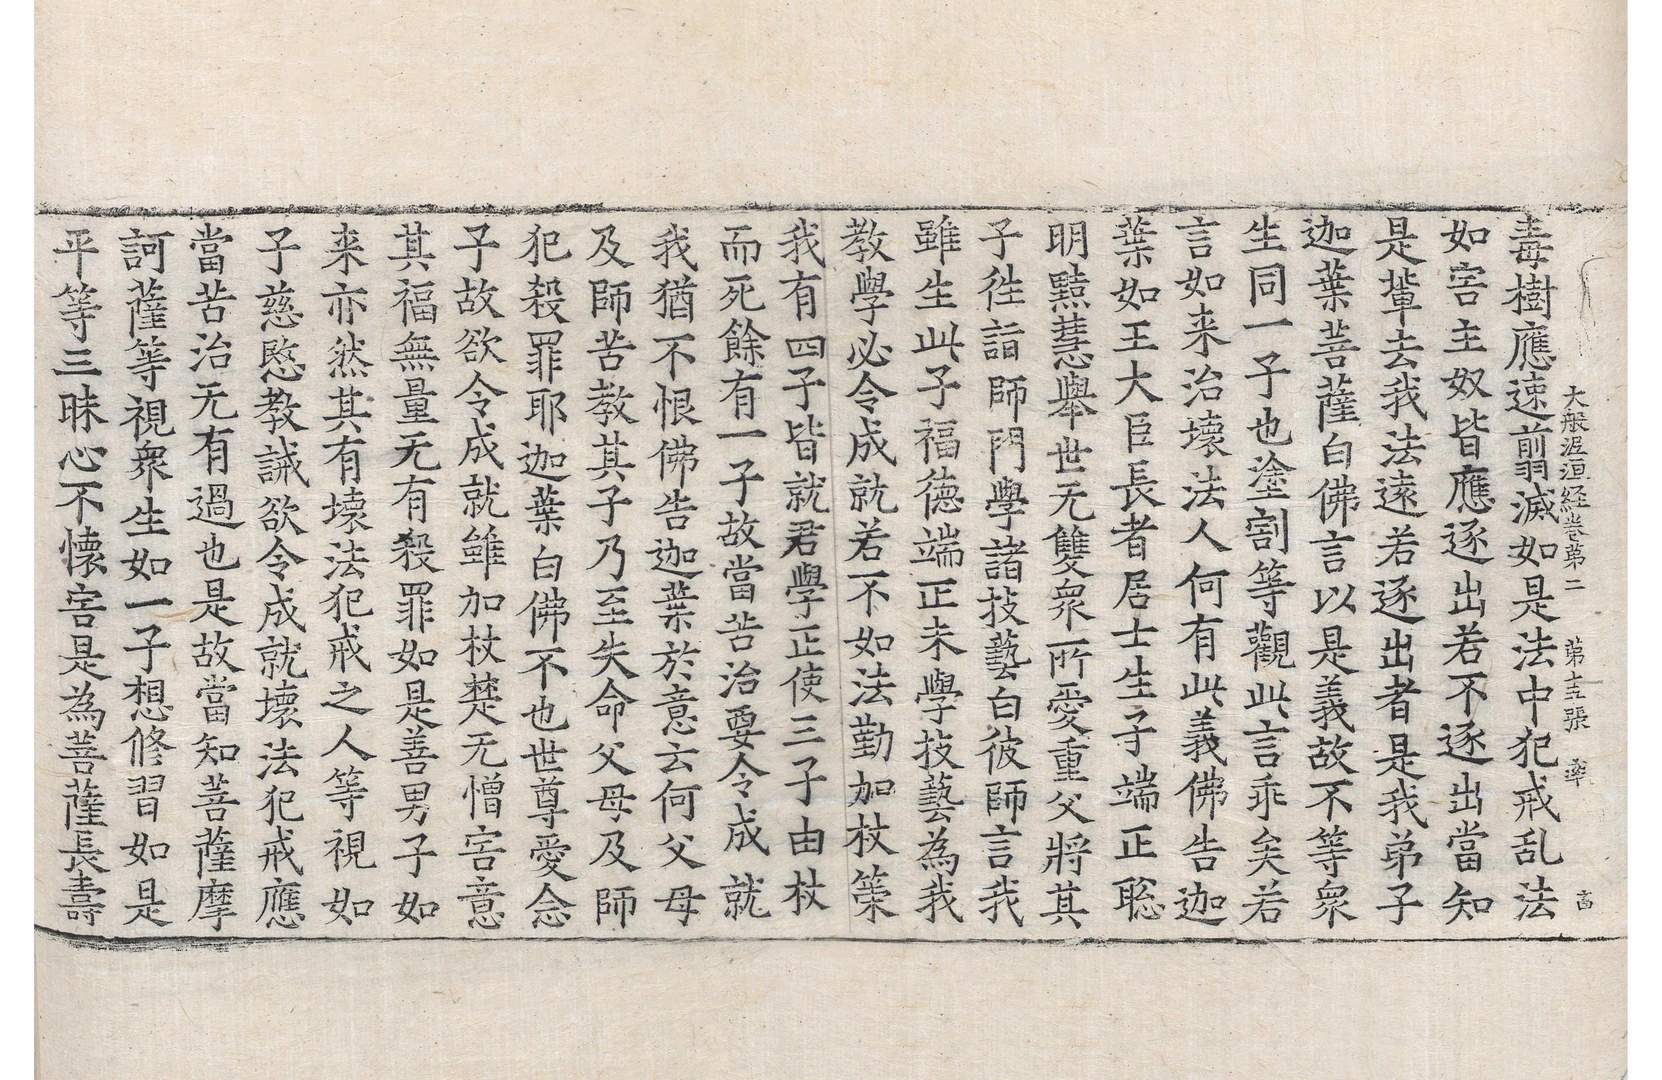 大般泥洹経卷苐二　苐十五張　率　高
毒樹應速翦滅如是法中犯戒乱法
如害主奴皆應逐出若不逐出當知
是輩去我法遠若逐出者是我弟子
迦葉菩薩白佛言以是義故不等衆
生同一子也塗割等觀此言乖矣若
言如来治壞法人何有此義佛告迦
葉如王大臣長者居士生子端正聡
明黠慧舉世无雙衆所愛重父將其
子往詣師門學諸技藝白彼師言我
雖生此子福德端正未學技藝為我
教學必令成就若不如法勤加杖䇿
我有四子皆就君學正使三子由杖
而死餘有一子故當苦治要令成就
我猶不恨佛告迦葉於意云何父母
及師苦教其子乃至失命父母及師
犯殺罪耶迦葉白佛不也世尊愛念
子故欲令成就雖加杖楚无憎害意
其福無量无有殺罪如是善男子如
来亦然其有壞法犯戒之人等視如
子慈愍教誡欲令成就壞法犯戒應
當苦治无有過也是故當知菩薩摩
訶薩等視衆生如一子想修習如是
平等三昧心不懷害是為菩薩長壽